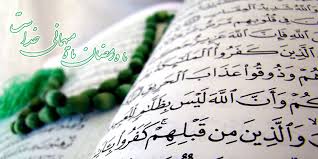 ماه رمضان ماه مهمانی خداست
فِي قُلُوبِهِم
الَّذِينَ كَفَرُوا
وَذُوقُوا عَذَابَ
كُمْ وَأَنَّ اللَّهَ لَيْسَ بِظَلَّامٍ
وَالَّذِينَ مِن قَبْلِهِمْ كَفَرُوا